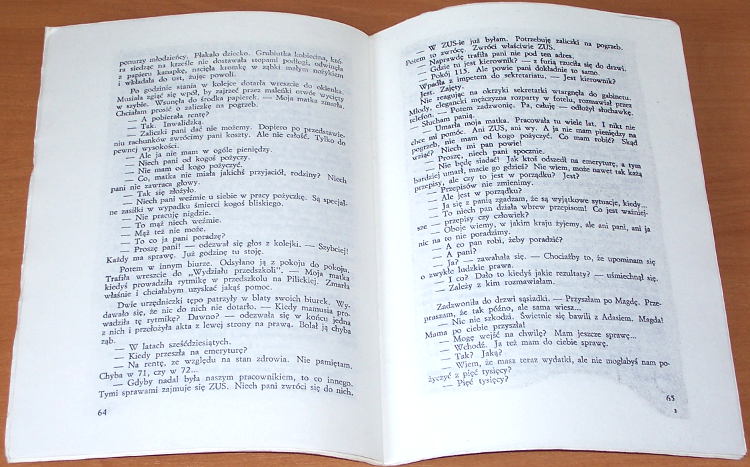 ponurzy młodzieńcy. Płakało dziecko. Grubiutka kobiecina, któ-
ra siedząc na krześle nie dostawała stopami podłogi, odwinęła
z papieru kanapkę, nacięła kromkę w ząbki małym nożykiem
i wkładała do ust, żując powoli.
Po godzinie stania w kolejce dotarła wreszcie do okienka.
Musiała zgiąć się wpół, by zajrzeć przez maleńki otwór wycięty
w szybie. Wsunęła do środka papierek. — Moja matka zmarła.
Chciałam prosić o zaliczkę na pogrzeb.
— A pobierała rentę?
— Tak. Inwalidzką.
— Zaliczki pani dać nie możemy. Dopiero po przedstawie-
niu rachunków zwrócimy pani koszty. Ale nie całość. Tylko do
pewnej wysokości.
— Ale ja nie mam w ogóle pieniędzy.
— Niech pani od kogoś pożyczy.
— Nie mam od kogo pożyczyć.
— Co, matka nie miała jakichś przyjaciół, rodziny? Niech
pani nie zawraca głowy.
— Tak się złożyło.
— Niech pani weźmie u siebie w pracy pożyczkę. Są specjal-
ne zasiłki w wypadku śmierci kogoś bliskiego.
— Nie pracuję nigdzie.
— To mąż niech weźmie.
— Mąż też nie może.
— To co ja pani poradzę?
— Proszę pani! — odezwał się głos z kolejki. — Szybciej!
Każdy ma sprawę. Już godzinę tu stoję.
Potem w innym biurze. Odsyłano ją z pokoju do pokoju.
Trafiła wreszcie do „Wydziału przedszkoli". — Moja matka
kiedyś prowadziła rytmikę w przedszkolu na Pilickiej. Zmarła
właśnie i chciałabym uzyskać jakąś pomoc.
Dwie urzędniczki tępo patrzyły w blaty swoich biurek. Wy-
dawało się, że nic do nich nie dotarło. — Kiedy mamusia pro-
wadziła tę rytmikę? Dawno? — odezwała się w końcu jedna
z nich i przełożyła akta z lewej strony na prawą. Bolał ją chyba
ząb.
— W latach sześćdziesiątych.
— Kiedy przeszła na emeryturę?
— Na rentę, ze względu na stan zdrowia. Nie pamiętam.
Chyba w 71, czy w 72...
— Gdyby nadal była naszym pracownikiem, to co innego.
Tymi sprawami zajmuje się ZUS. Niech pani zwróci się do nich.
64
— W ZUS-ie już byłam. Potrzebuję zaliczki na pogrzeb.
Potem to zwrócę. Zwróci właściwie ZUS.
— Naprawdę nie trafiła pani nie pod ten adres.
— Gdzie tu jest kierownik? — z furią rzuciła się do drzwi.
— Pokój 115. Ale powie pani dokładnie to samo.
Wpadła z impetem do sekretariatu. — Jest kierownik?
Jest. Zajęty.
Nie reagując na okrzyki sekretarki wtargnęła do gabinetu.
Młody, elegancki mężczyzna rozparty w fotelu, rozmawiał przez
telefon. — Potem zadzwonię. Pa, całuję — odłożył słuchawkę.
— Słucham panią.
— Umarła moja matka. Pracowała tu wiele lat. I nikt nie
chce mi pomóc. Ani ZUS, ani wy. A ja nie mam pieniędzy na
pogrzeb, nie mam od kogo pożyczyć. Co mam robić? Skąd
wziąć? Niech mi pan powie!
— Proszę, niech pani spocznie.
— Nie będę siadać! Jak ktoś odszedł na emeryturę, a tym
bardziej umarł, macie go gdzieś? Nie wiem, może nawet tak każą
przepisy, ale czy to jest w porządku? Jest?
— Przepisów nie zmienimy.
— Ale jest w porządku?
— Ja się z panią zgadzam, że są wyjątkowe sytuacje, kiedy...
— To niech pan działa wbrew przepisom! Co jest ważniej-
sze — przepisy czy człowiek?
— Oboje wiemy, w jakim kraju żyjemy, ale ani pani, ani ja
nic na to nie poradzimy.
— A co pan robi, żeby poradzić?
— A pani?
— Ja? — zawahała się. — Chociażby to, że upominam się
o zwykłe ludzkie prawa.
— I co? Dało to kiedyś jakieś rezultaty? — uśmiechnął się.
— Zależy z kim rozmawiałam.
Zadzwoniła do drzwi sąsiadki. — Przyszłam po Magdę. Prze-
praszam, że tak późno, ale sama wiesz...
— Nic nie szkodzi. Świetnie się bawili z Adasiem. Magda!
Mama po ciebie przyszła!
— Mogę wejść na chwilę? Mam jeszcze sprawę...
— Wchodź. Ja też mam do ciebie sprawę.
— Tak? Jaką?
— Wiem, że masz teraz wydatki, ale nie mogłabyś nam po-
życzyć z pięć tysięcy?
— Pięć tysięcy?
65
3